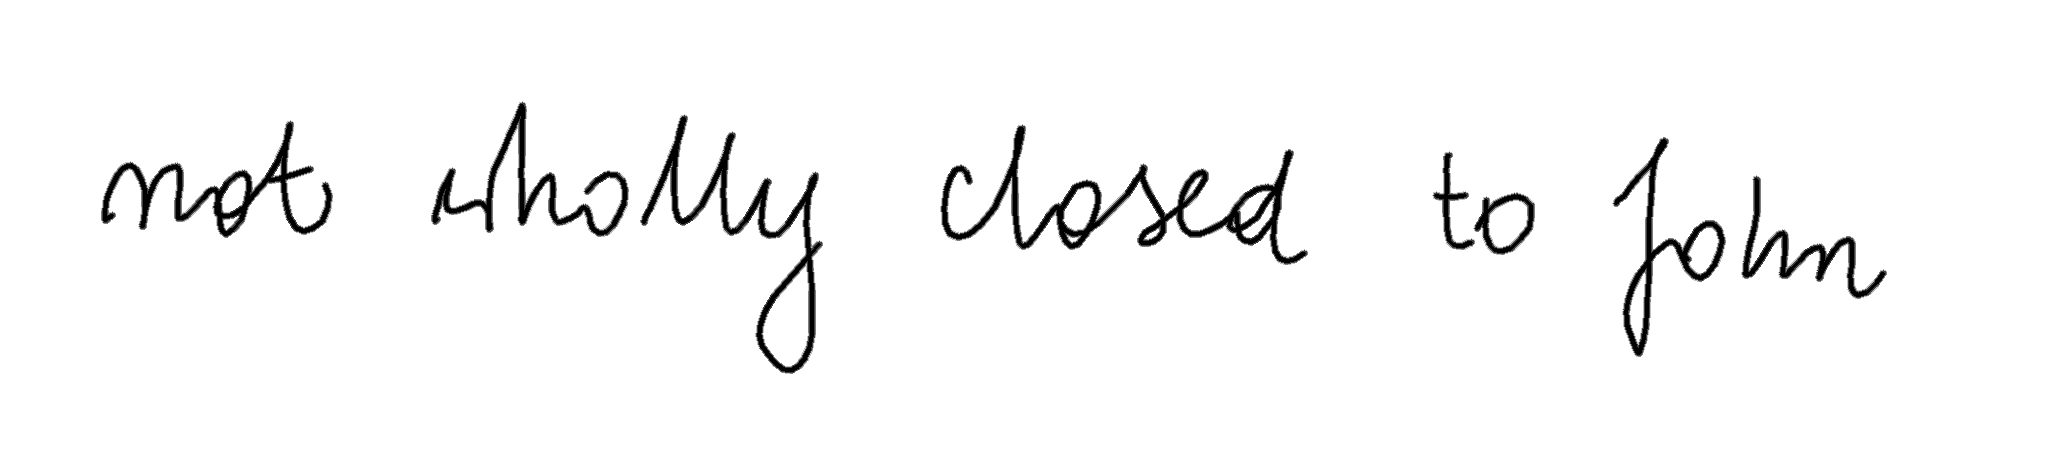 not wholly closed to John